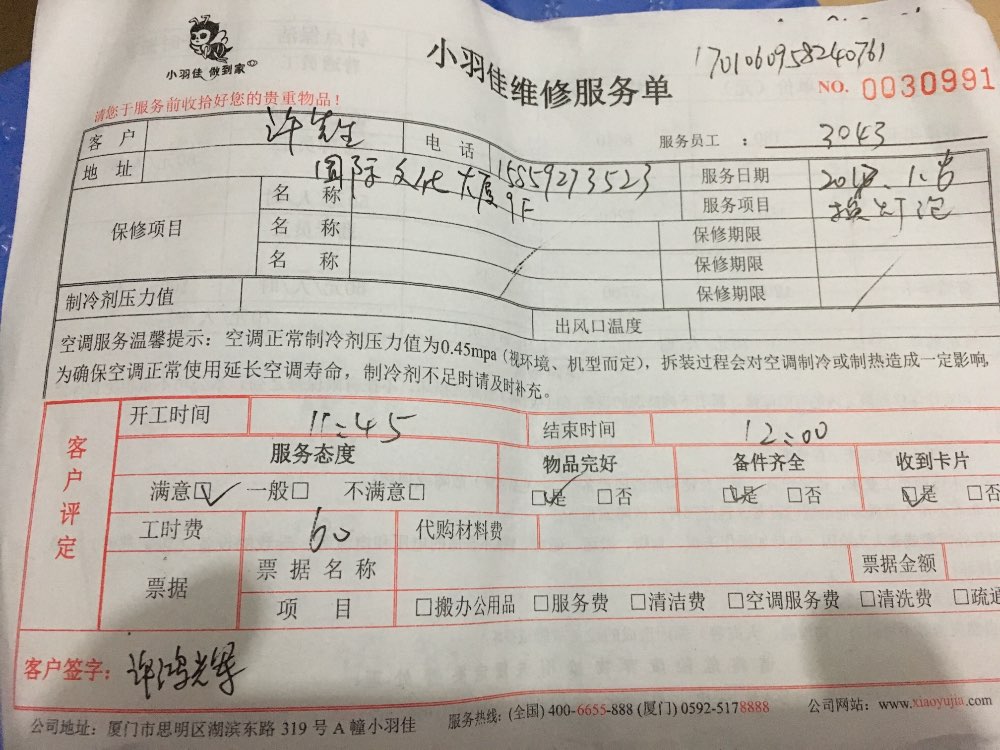 小羽佳 做到家
小羽佳维修服务单
1701060958240761
NO. 0030991
请您于服务前收拾好您的贵重物品！
服务员工 ： 3043
客 户 许先生 电 话 15859273523 服务日期 2017.1.6
地 址 国际文化大厦9F 服务项目 换灯泡
保修项目 名 称 保修期限
名 称 保修期限
名 称 保修期限
制冷剂压力值 出风口温度
空调服务温馨提示：空调正常制冷剂压力值为0.45mpa（视环境、机型而定），拆装过程会对空调制冷或制热造成一定影响，
为确保空调正常使用延长空调寿命，制冷剂不足时请及时补充。
客户评定
开工时间 11:45 结束时间 12:00
服务态度 物品完好 备件齐全 收到卡片
满意☑ 一般□ 不满意□ ☑是 □否 ☑是 □否 ☑是 □否
工时费 60 代购材料费
票据 票据名称 票据金额
项 目 □搬办公用品 □服务费 □清洁费 □空调服务费 □清洗费 □疏通
客户签字： 许鸿光
公司地址：厦门市思明区湖滨东路 319 号 A 幢小羽佳 服务热线：(全国) 400-6655-888 (厦门) 0592-5178888 公司网站：www.xiaoyujia.com